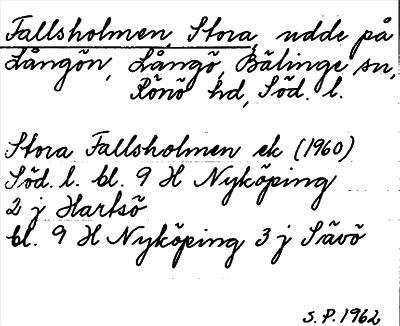 Fallsholmen, Stora, udde på
Långön, Långö, Bälinge sn,
Rönö hd, Söd. l.
Stora Fallsholmen ek (1960)
Söd. l. bl. 9 H Nyköping
2 j Hartsö
bl. 9 H Nyköping 3 j Sävö
S.P. 1962